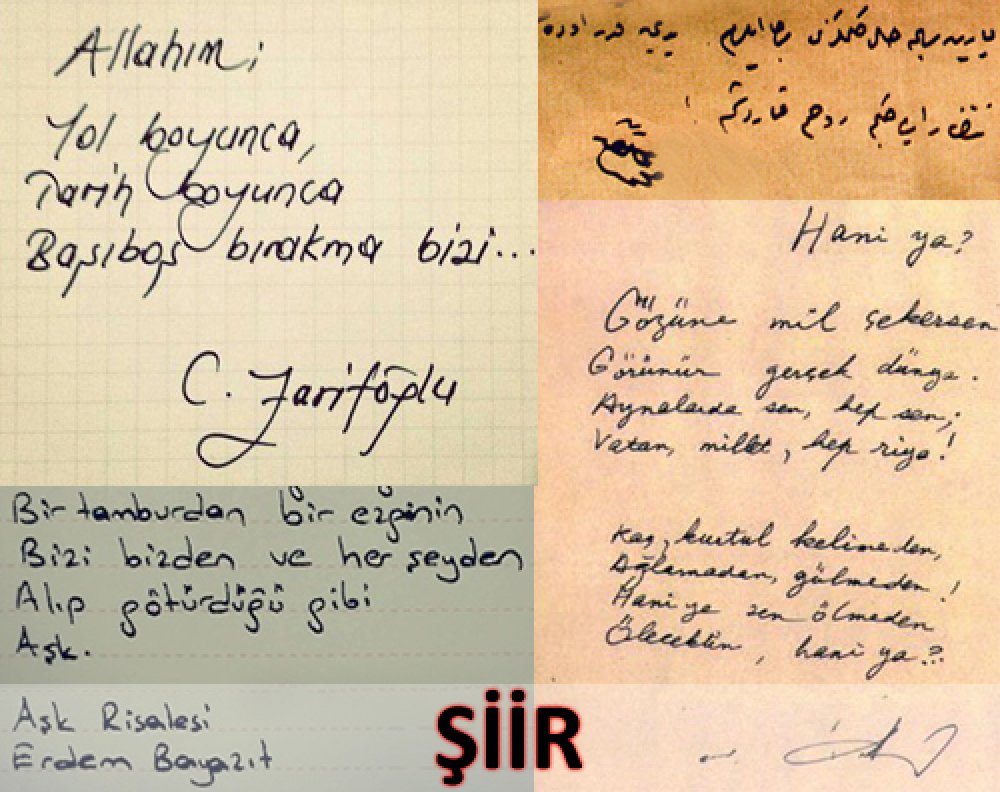 Allahım;
Yol boyunca,
Tarih boyunca
Başıboş bırakma bizi...
C. Zarifoğlu
Bir tamburdan bir ezginin
Bizi bizden ve her şeyden
Alıp götürdüğü gibi
Aşk.
Aşk Risalesi
Erdem Bayazıt
Hani ya?
Gözüne mil çekersen
Görünür gerçek dünya.
Aynalarda sen, hep sen;
Vatan, millet, hep riya!
Kaç, kurtul kelimeden,
Ağlamadan, gülmeden!
Hani ya sen ölmeden
Ölecektin, hani ya?..
ŞİİR